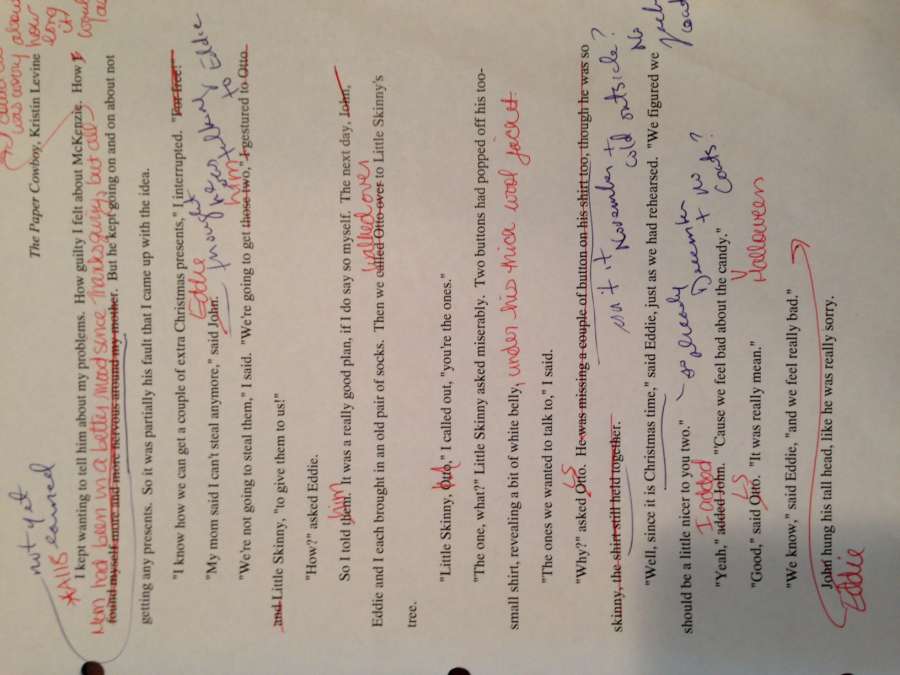 The Paper Cowboy, Kristin Levine
was worry about
how
long
it
would
not yet
earned
*AllB
I kept wanting to tell him about my problems. How guilty I felt about McKenzie. How I
Mom had been in a better mood since Thanksgiving, but all
found myself more and more nervous around my mother. But he kept going on and on about not
getting any presents. So it was partially his fault that I came up with the idea.
"I know how we can get a couple of extra Christmas presents," I interrupted. "For free!"
Eddie
thought he was talking to Eddie
"My mom said I can't steal anymore," said John.
him
"We're not going to steal them," I said. "We're going to get those two," I gestured to Otto
and Little Skinny, "to give them to us!"
"How?" asked Eddie.
him
So I told them. It was a really good plan, if I do say so myself. The next day, John,
walked over
Eddie and I each brought in an old pair of socks. Then we called Otto over to Little Skinny's
tree.
"Little Skinny, Otto," I called out, "you're the ones."
"The one, what?" Little Skinny asked miserably. Two buttons had popped off his too-
small shirt, revealing a bit of white belly, under his thick wool jacket.
"The ones we wanted to talk to," I said.
LS
"Why?" asked Otto. He was missing a couple of button on his shirt too, though he was so
skinny, the shirt still held together.
isn't it November to cold outside?
No
coats
"Well, since it is Christmas time," said Eddie, just as we had rehearsed. "We figured we
should be a little nicer to you two."
so already December no coats?
I added
"Yeah," added John. "'Cause we feel bad about the candy."
Halloween
LS
"Good," said Otto. "It was really mean."
"We know," said Eddie, "and we feel really bad."
John hung his tall head, like he was really sorry.
Eddie